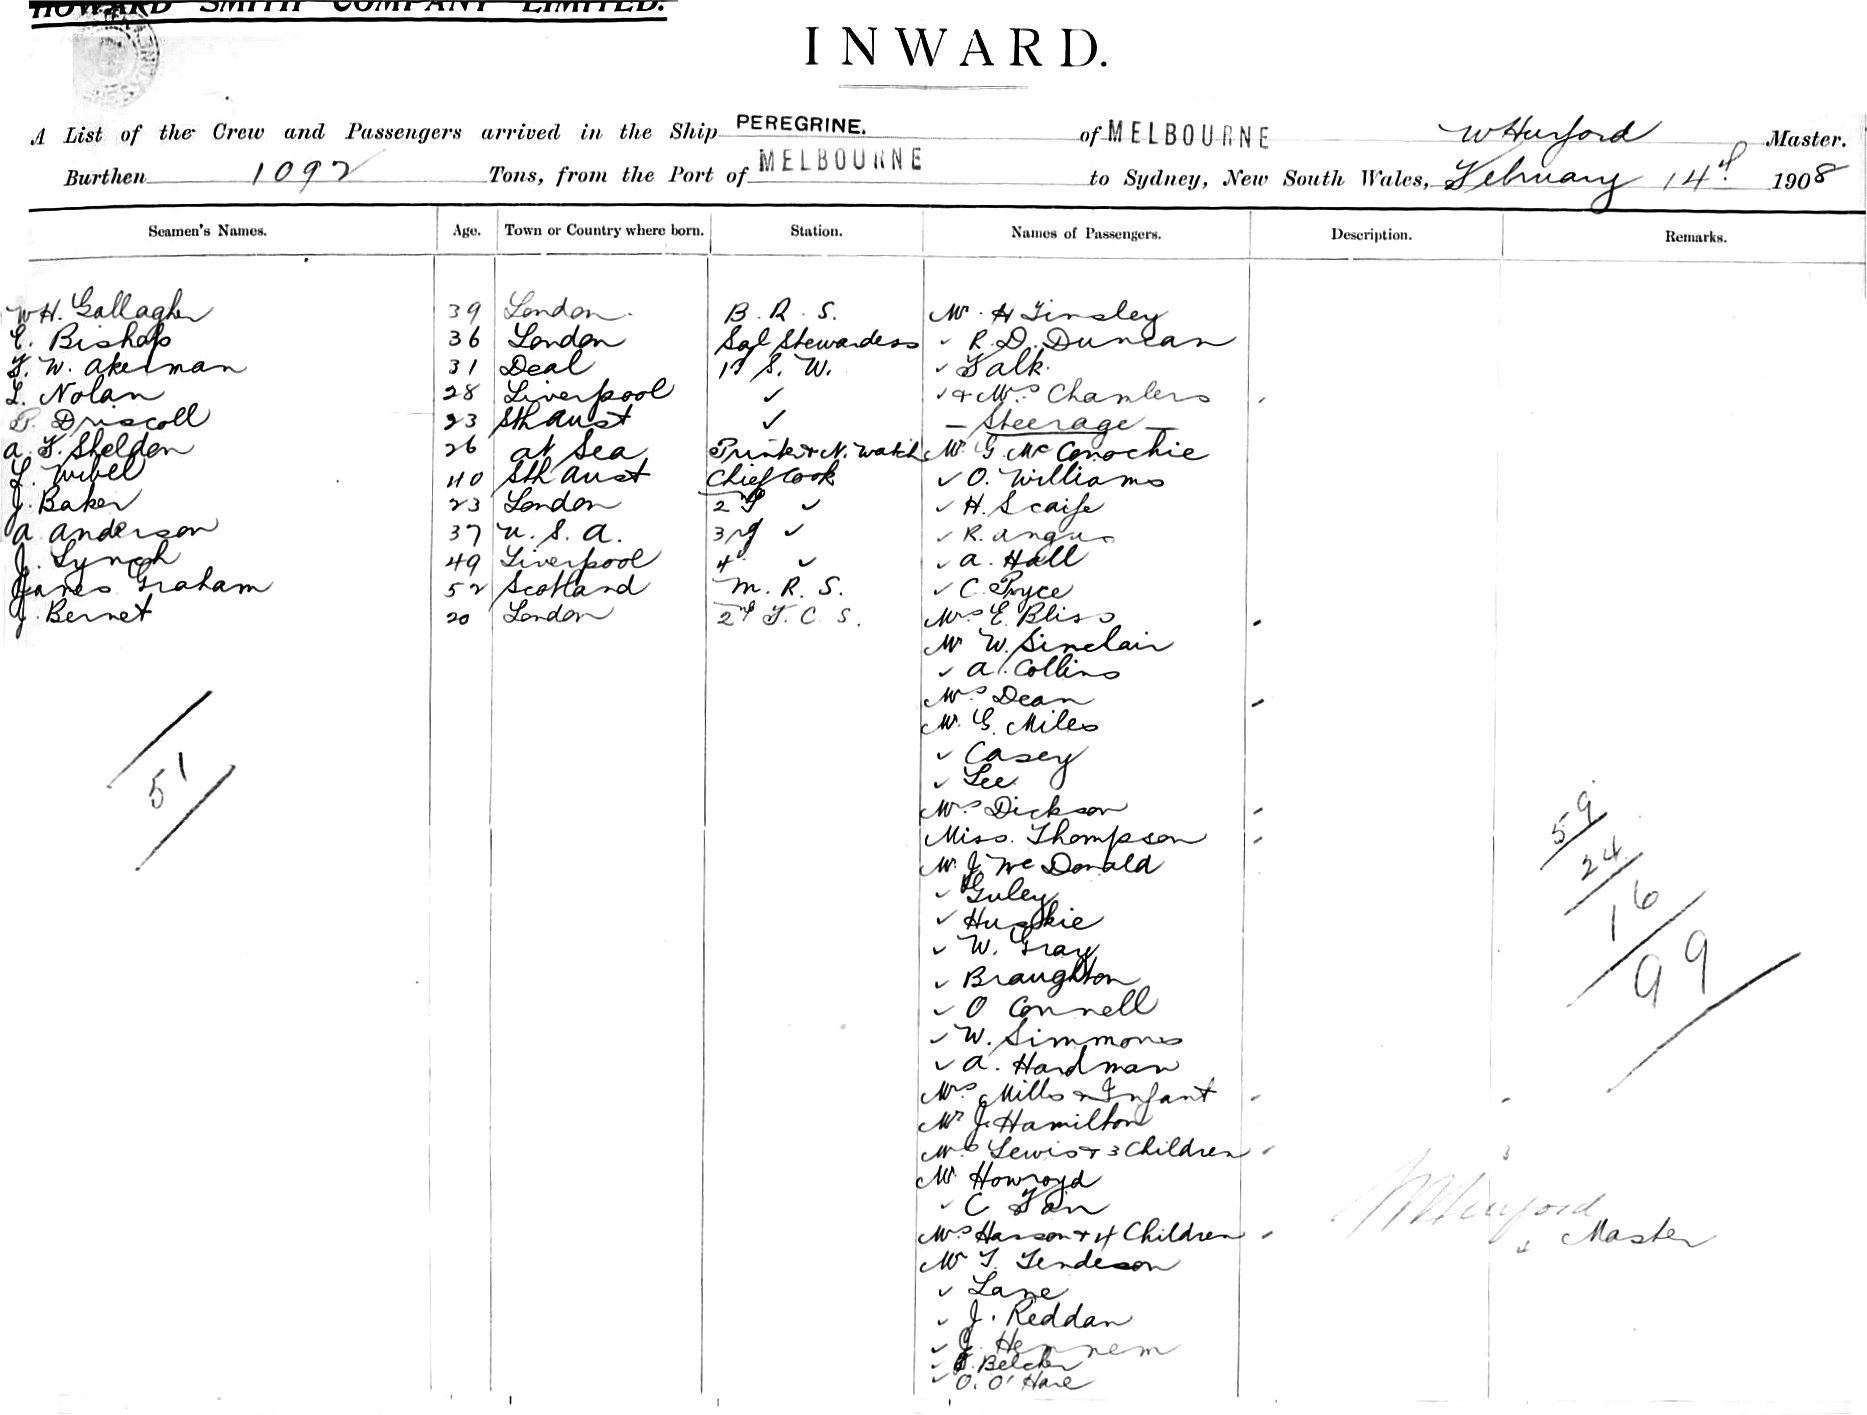 HOWARD SMITH COMPANY LIMITED.
INWARD.
A List of the Crew and Passengers arrived in the Ship PEREGRINE. of MELBOURNE W Hurford Master.
Burthen 1092 Tons, from the Port of MELBOURNE to Sydney, New South Wales, February 14th 1908
Seamen's Names. Age. Town or Country where born. Station. Names of Passengers. Description. Remarks.
W H. Gallagher 39 London B. R. S. Mr. H Tinsley
E. Bishop 36 London Sal Stewardess ✓ R. D. Duncan
F. W. Akerman 31 Deal S. W. ✓ Falk
L. Nolan 28 Liverpool ✓ ✓ & Mrs Chamlers
P. Driscoll 23 Sth Aust ✓ — Steerage —
A. F. Sheldon 26 at Sea Printer & N. Watch Mr G McConochie
L. Wibel 40 Sth Aust Chief Cook ✓ O. Williams
J. Baker 23 London 2nd ✓ ✓ H. Scaife
A Anderson 37 U. S. A. 3rd ✓ ✓ R. Angus
J. Lynch 49 Liverpool 4 ✓ ✓ A. Hall
James Graham 52 Scotland M. R. S. ✓ C. Pryce
J. Bernet 20 London 2nd F. C. S. Mrs E. Bliss
Mr W. Sinclair
✓ A. Collins
Mrs Dean
Mr. G. Miles
✓ Casey
✓ Lee
Mrs Dickson
Miss. Thompson
Mr. J. McDonald
✓ Guley
✓ Huskie
✓ W. Gray
✓ Braughton
✓ O Connell
✓ W. Simmons
✓ A. Hardman
Mrs Mills & Infant
Mr J. Hamilton
Mrs Lewis & 3 Children
Mr Howroyd
✓ C Fan
Mrs Hasson & 4 Children
Mr T. Tendeson
✓ Lane
✓ J. Reddan
✓ J. Hennem
✓ Belcher
✓ O. O'Hare
51
59
24
16
99
W Hurford
Master